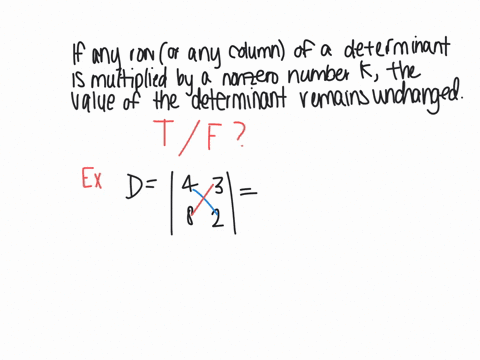 If any row (or any column) of a determinant
is multiplied by a nonzero number K, the
value of the determinant remains unchanged.
T / F ?
Ex D = | 4 3 | =
| 8 2 |